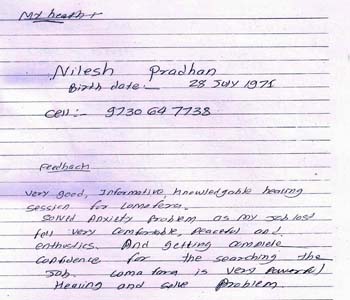 My health
Nilesh Pradhan
Birth date:- 28 July 1975
Cell:- 9730 64 7738
Feedback
very good, Informative, knowledgable healing
session for Lama fera.
Solved Anxiety Problem as my Job lost
fell very comfortable, Peaceful and
enthustics. And getting complete
Confidence for the searching the
Job. Lama fera is very Powerful
Healing and solve Problem.